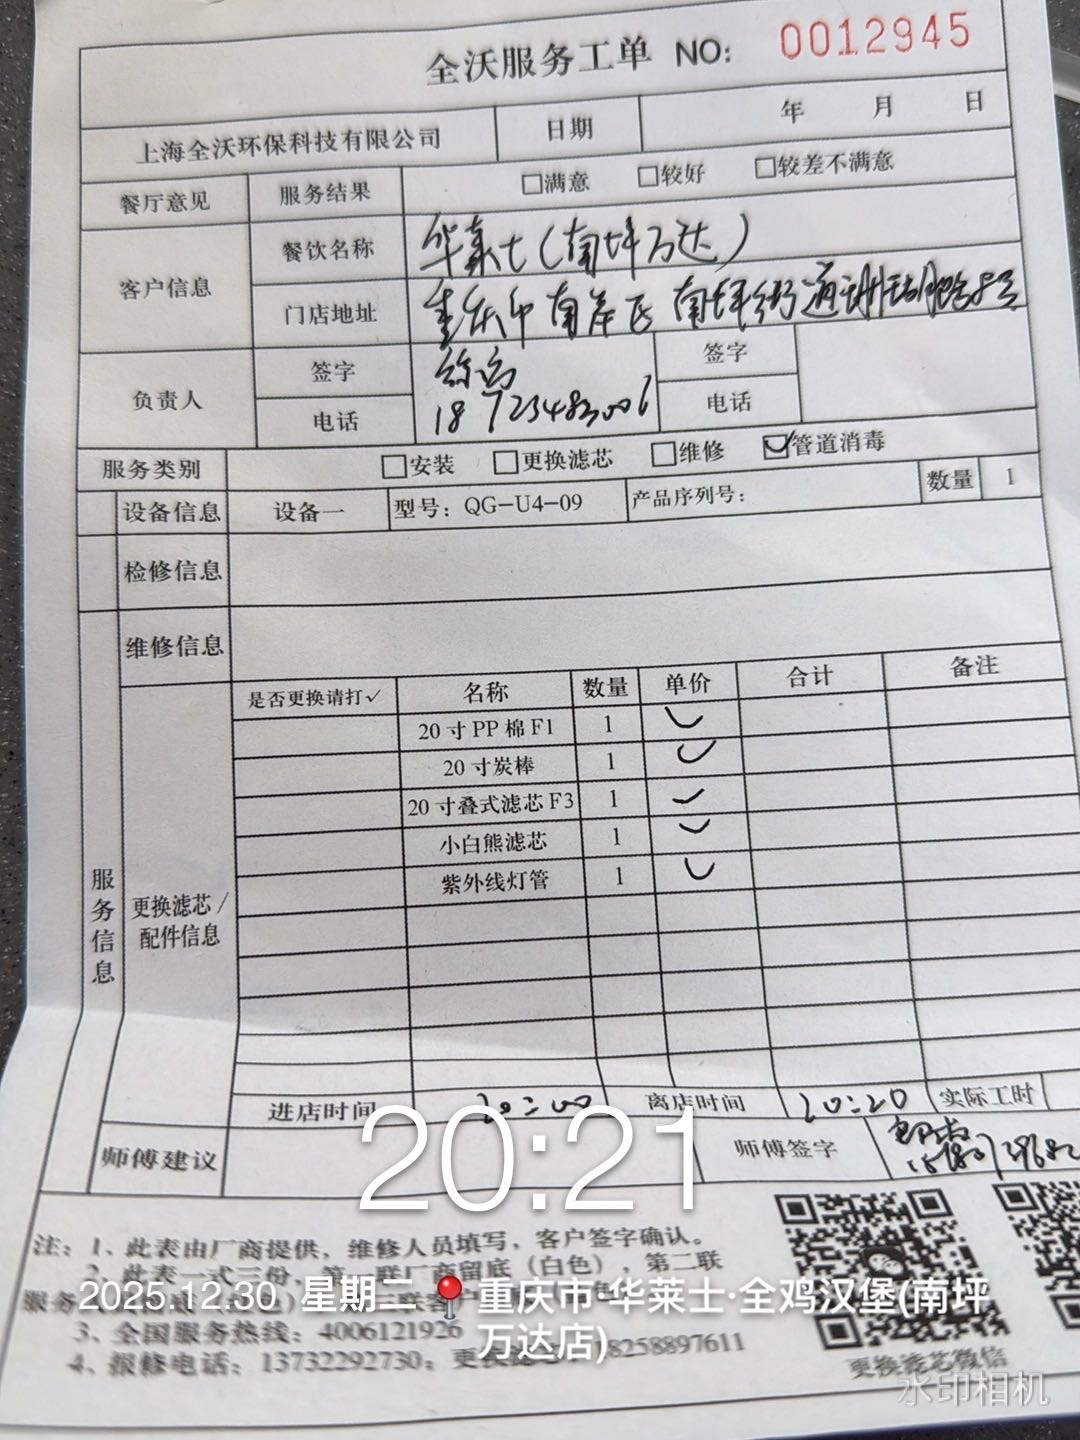 全沃服务工单 NO: 0012945
上海全沃环保科技有限公司 日期 年 月 日
餐厅意见 服务结果 □满意 □较好 □较差不满意
客户信息 餐饮名称 华莱士(南坪万达)
门店地址 重庆市南岸区南坪街道
负责人 签字 签字
电话 18723483006 电话
服务类别 □安装 □更换滤芯 □维修 ☑管道消毒
设备信息 设备一 型号: QG-U4-09 产品序列号: 数量 1
检修信息
维修信息
是否更换请打✓ 名称 数量 单价 合计 备注
20寸PP棉F1 1 ✓
20寸炭棒 1 ✓
20寸叠式滤芯F3 1 ✓
小白熊滤芯 1 ✓
紫外线灯管 1 ✓
服务信息
更换滤芯/
配件信息
进店时间 20:00 离店时间 20:20 实际工时
师傅建议 师傅签字
20:21
注: 1、此表由厂商提供，维修人员填写，客户签字确认。
2、此表一式三份，第一联厂商留底（白色），第二联
服务
3、全国服务热线: 4006121926
4、报修电话: 13732292730; 18258897611
更换滤芯微信
2025.12.30 星期二 重庆市·华莱士·全鸡汉堡(南坪
万达店)
水印相机